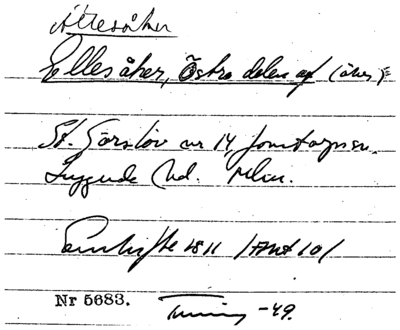 Ättesåker
Elles åker, Östra delen af (åker)
St. Görslöv nr 14, Jonstorps sn.
Luggude hd. Mlm.
Enskifte 1811 (Akt 10)
Nr 5683. -49.